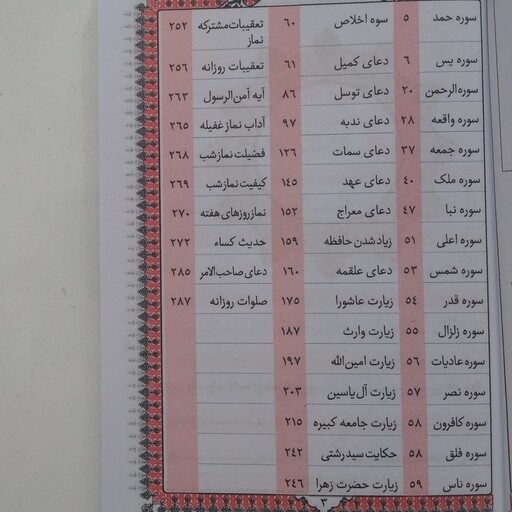 سوره حمد ۵ سوه اخلاص ۶۰ تعقیبات مشترکه نماز ۲۵۲
سوره یس ۶ دعای کمیل ۶۱ تعقیبات روزانه ۲۵۶
سوره الرحمن ۲۰ دعای توسل ۸۶ آیه آمن الرسول ۲۶۳
سوره واقعه ۲۸ دعای ندبه ۹۷ آداب نماز غفیله ۲۶۵
سوره جمعه ۳۷ دعای سمات ۱۲۶ فضیلت نماز شب ۲۶۸
سوره ملک ۴۰ دعای عهد ۱۴۵ کیفیت نماز شب ۲۶۹
سوره نبا ۴۷ دعای معراج ۱۵۲ نماز روزهای هفته ۲۷۰
سوره اعلی ۵۱ زیاد شدن حافظه ۱۵۹ حدیث کساء ۲۷۲
سوره شمس ۵۳ دعای علقمه ۱۶۰ دعای صاحب الامر ۲۸۵
سوره قدر ۵۴ زیارت عاشورا ۱۷۵ صلوات روزانه ۲۸۷
سوره زلزال ۵۵ زیارت وارث ۱۸۷
سوره عادیات ۵۶ زیارت امین الله ۱۹۷
سوره نصر ۵۷ زیارت آل یاسین ۲۰۳
سوره کافرون ۵۸ زیارت جامعه کبیره ۲۱۵
سوره فلق ۵۸ حکایت سید رشتی ۲۴۲
سوره ناس ۵۹ زیارت حضرت زهرا ۲۴۶
۳